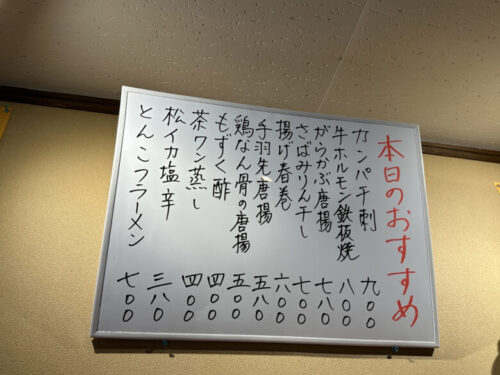 本日のおすすめ
カンパチ刺 九〇〇
牛ホルモン鉄板焼 八〇〇
がらかぶ唐揚 七八〇
さばみりん干し 七〇〇
揚げ春巻 六〇〇
手羽先唐揚 五八〇
鶏なん骨の唐揚 五〇〇
もずく酢 四〇〇
茶ワン蒸し 四〇〇
松イカ塩辛 三八〇
とんこつラーメン 七〇〇